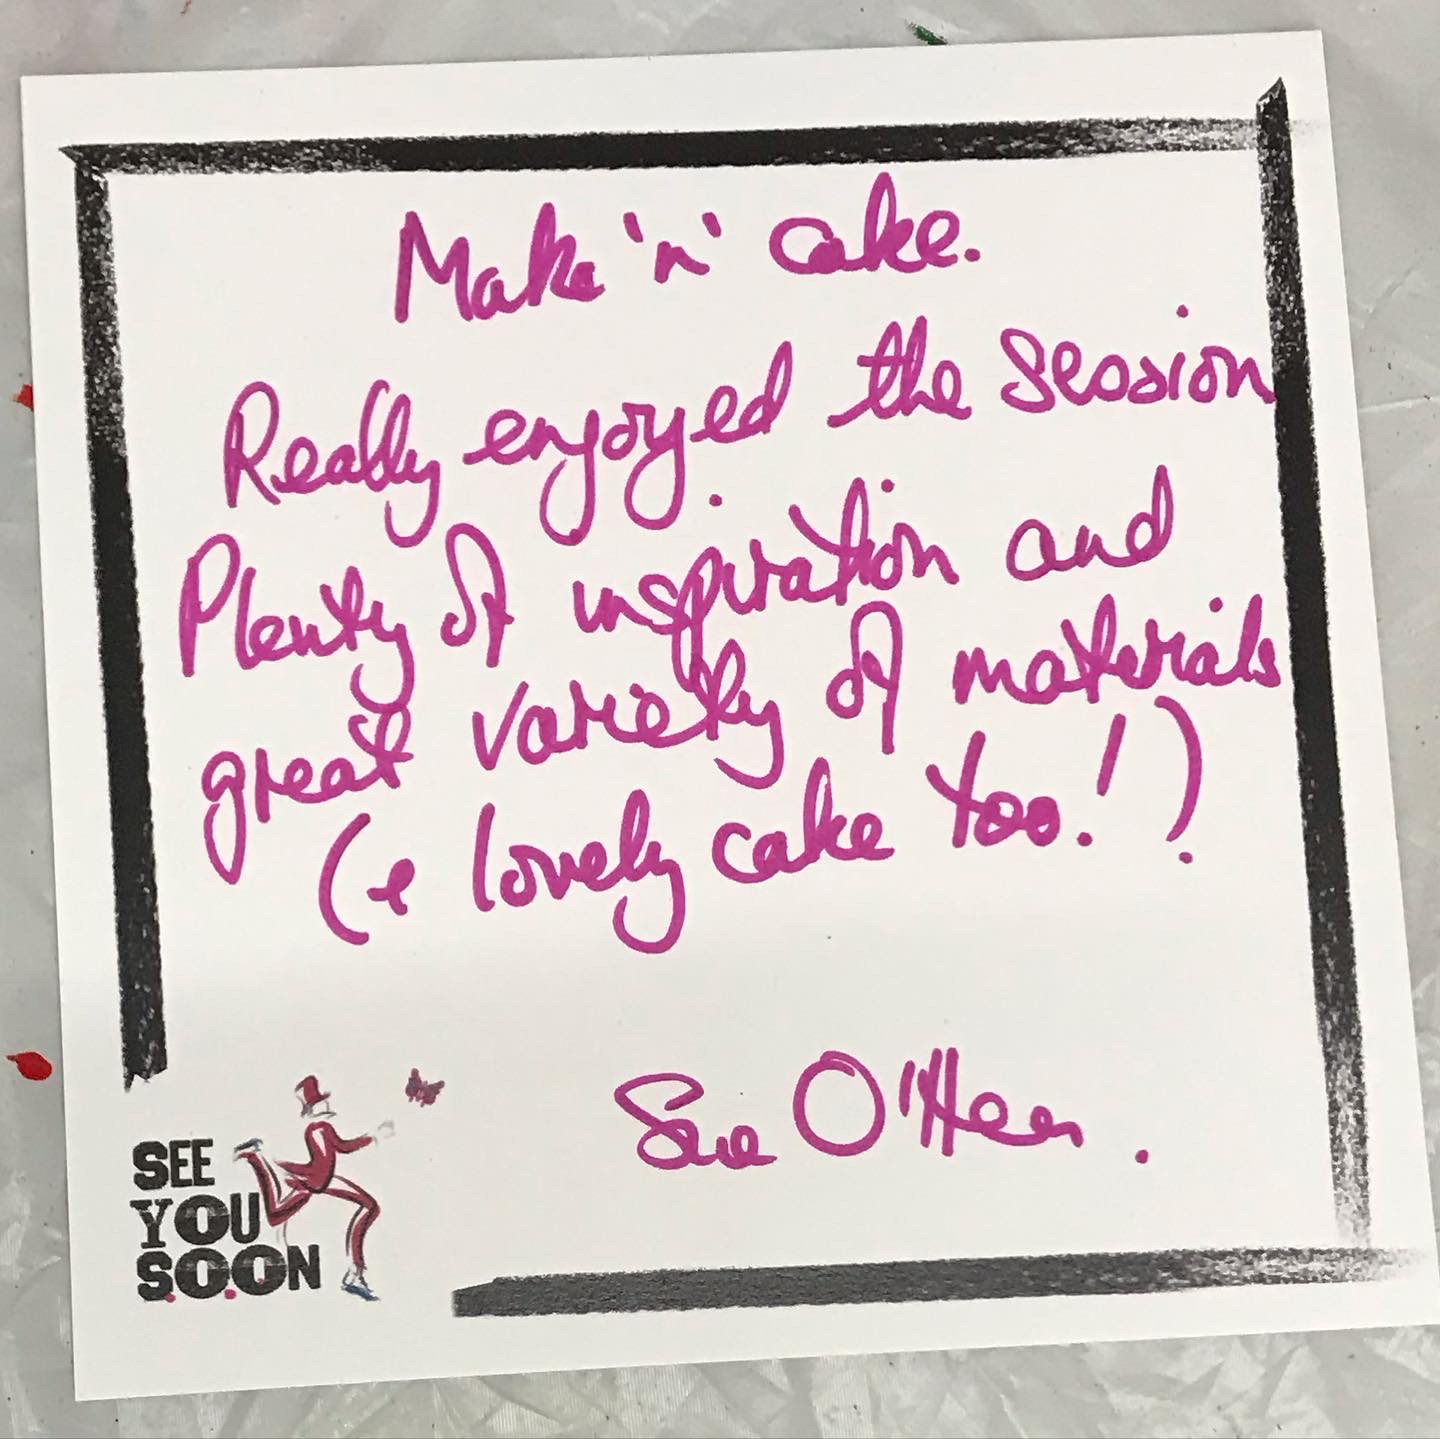 Make 'n' cake.
Really enjoyed the session.
Plenty of inspiration and
great variety of materials
(& lovely cake too!).
Sue
SEE
YOU
S.O.ON